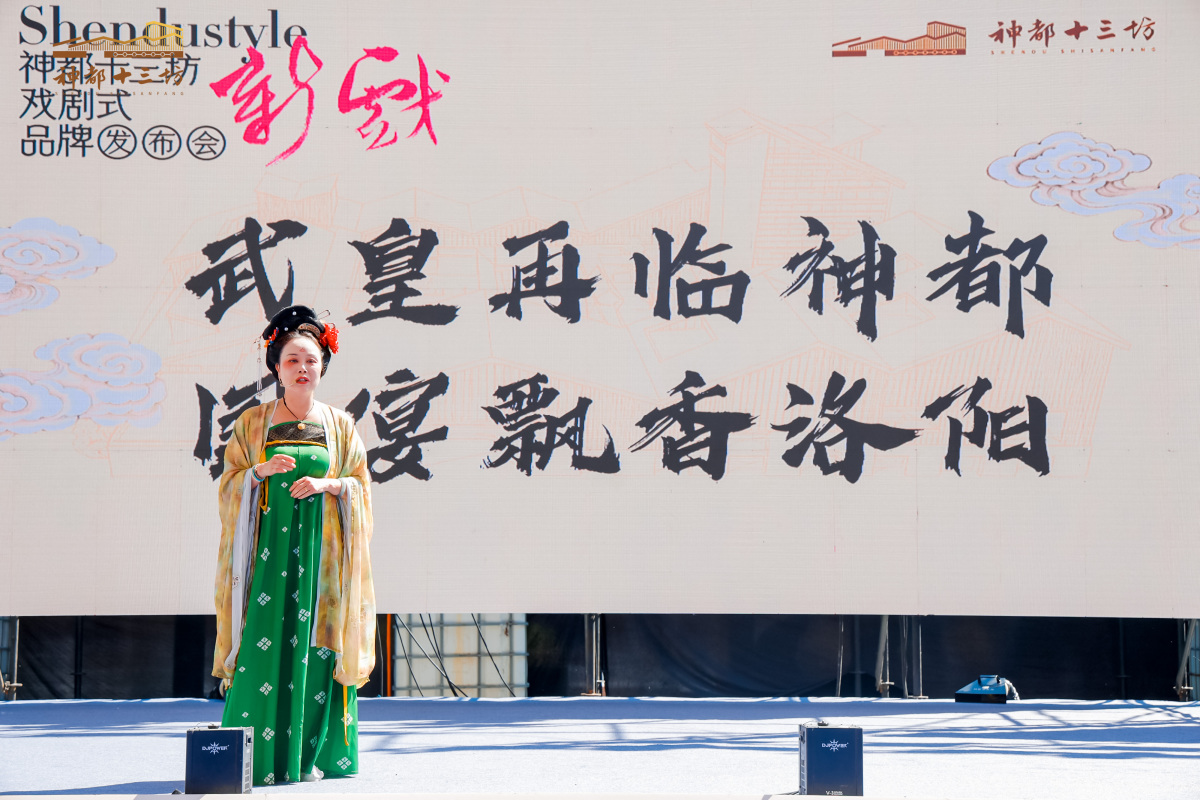 Shendustyle
神都十三坊
戏剧式
品牌发布会
新戏
神都十三坊
神都十三坊
SHENDU SHISANFANG
武皇再临神都
宴飘香洛阳
DJPOWER
DJPOWER